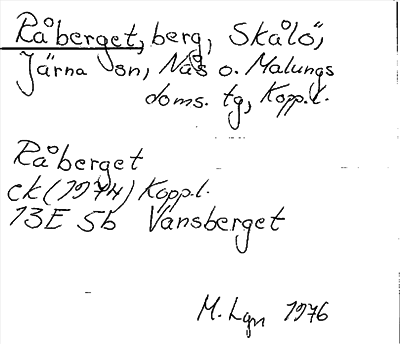 Råberget, berg, Skålö,
Järna sn, Nås o. Malungs
doms. tg, Kopp.l.
Råberget
ek (1974) Kopp.l.
13E 5b Vansberget
M. Lgn 1976